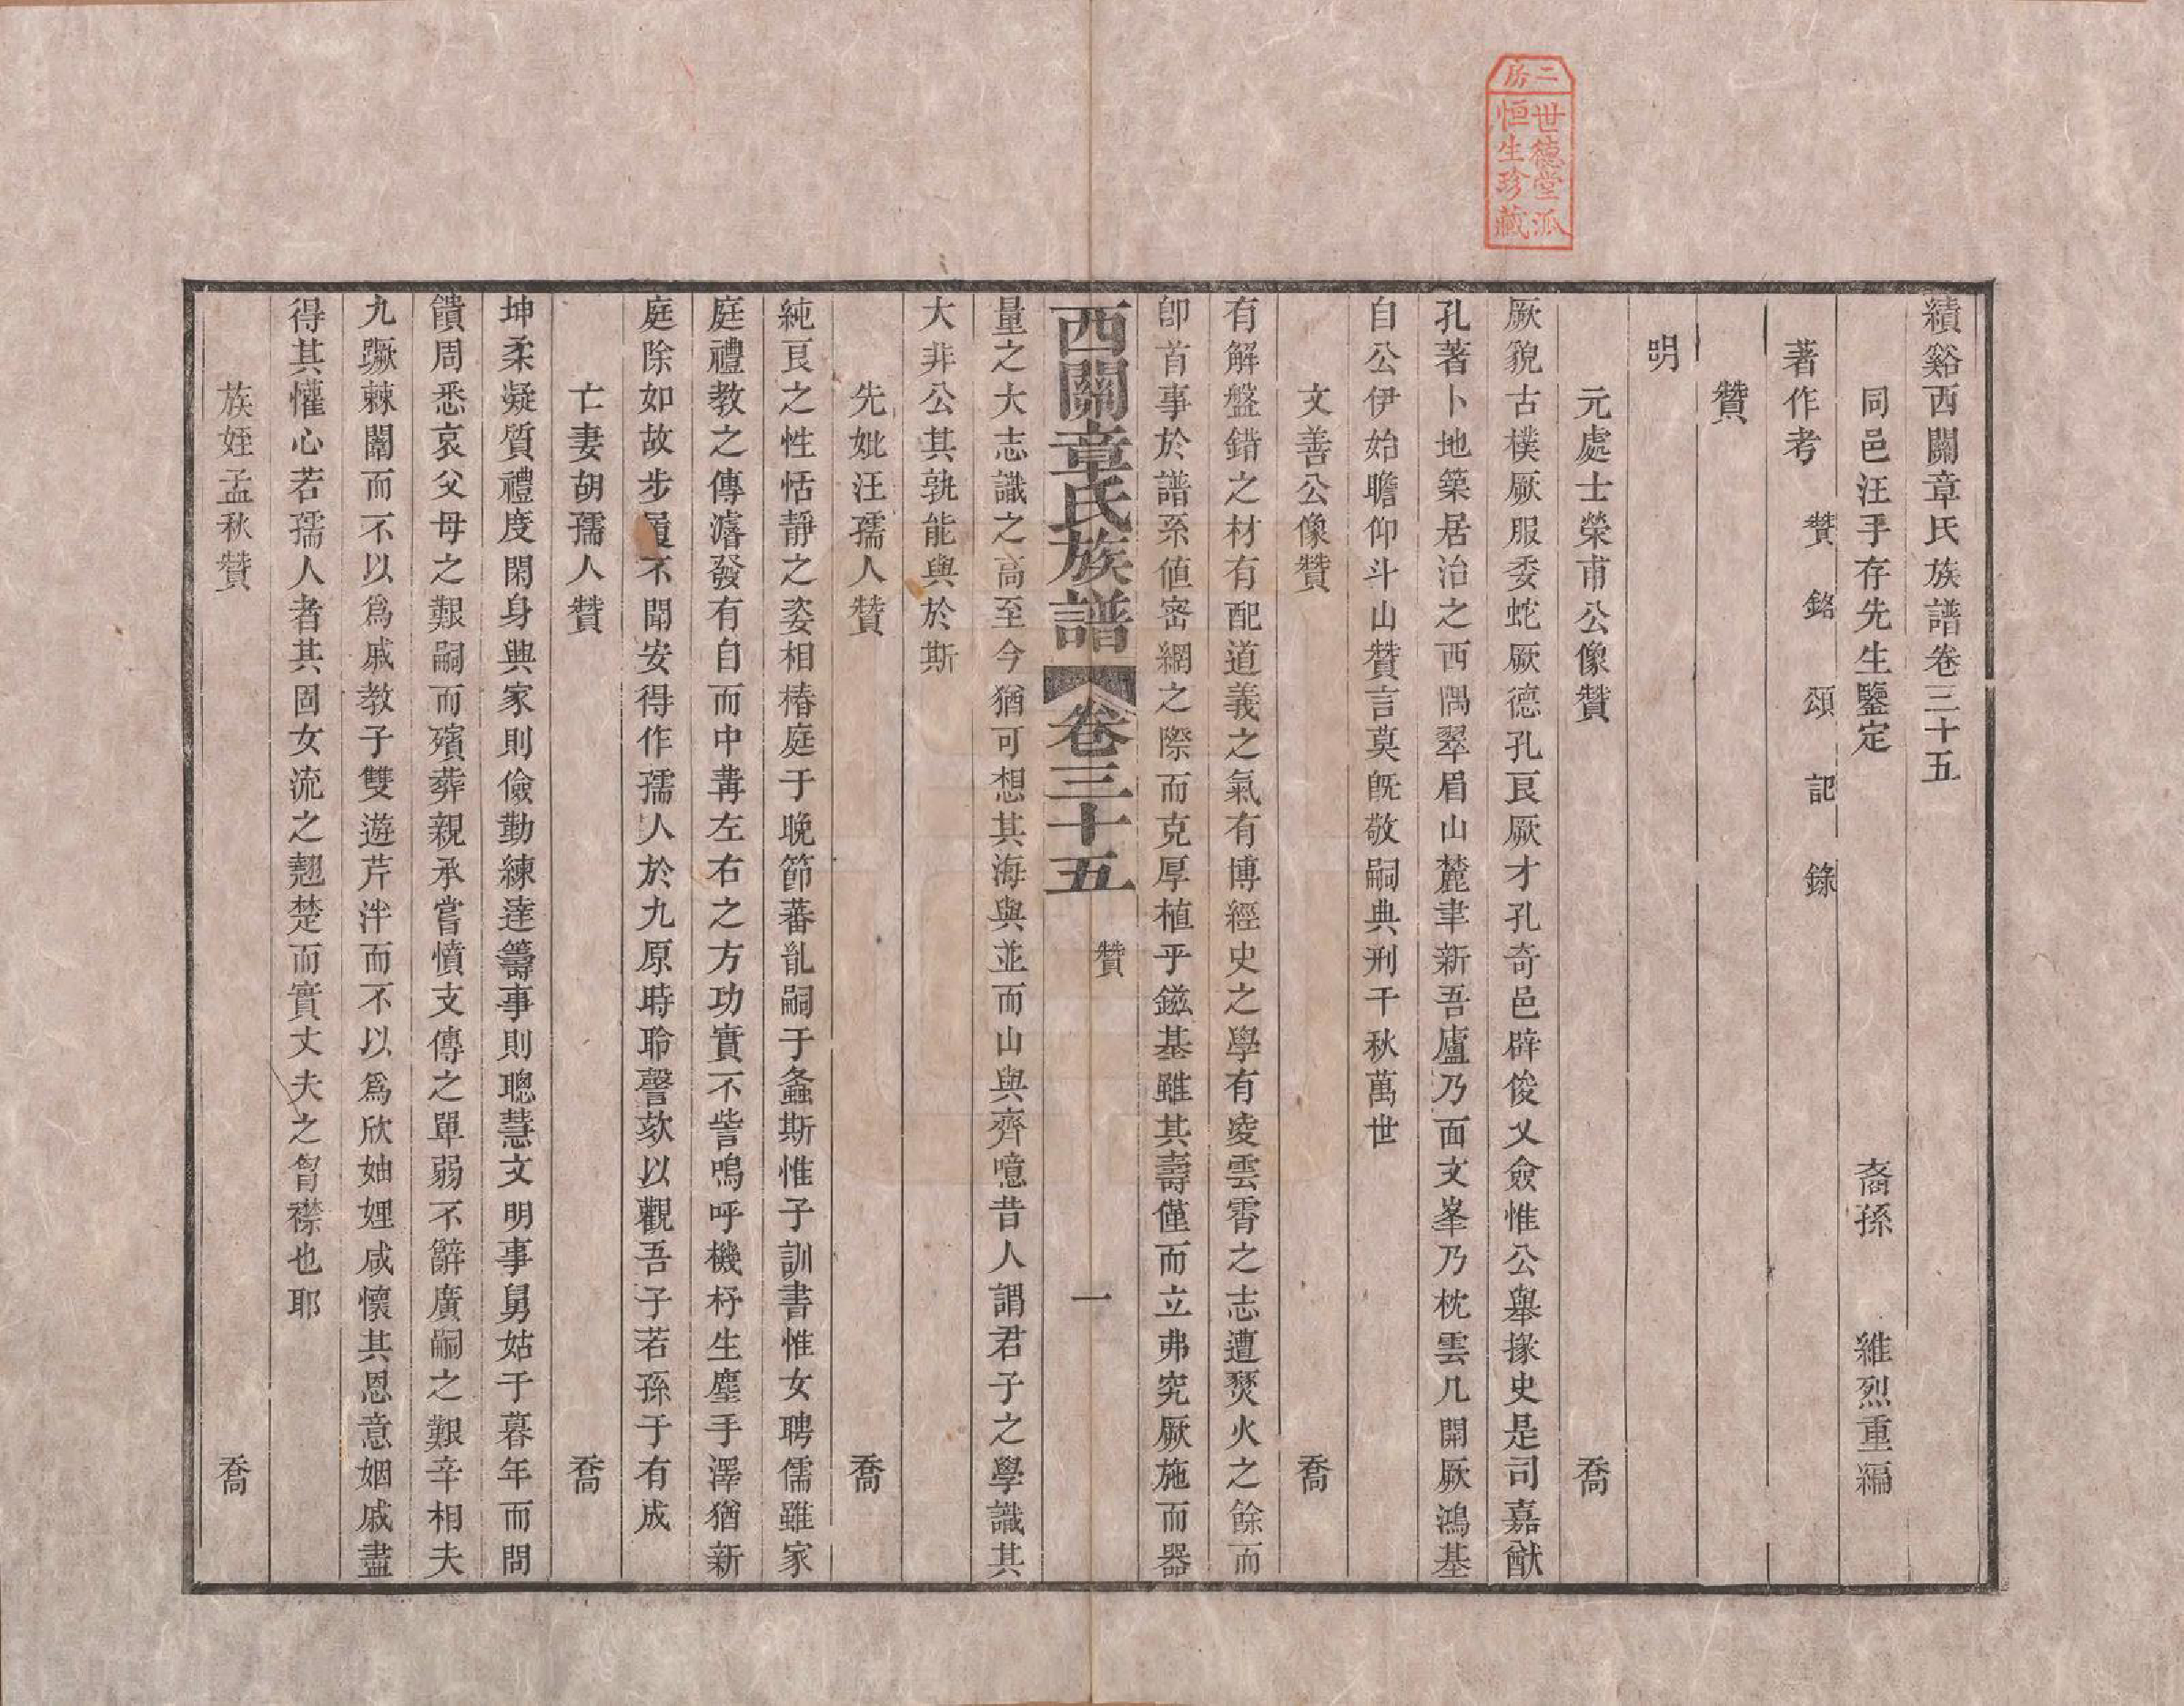 二房
世德堂派
恒生珍藏
績谿西關章氏族譜卷三十五
同邑汪手存先生鑒定　裔孫　維烈重編
著作考　贊　銘　頌　記　錄
贊
明
元處士榮甫公像贊　喬
厥貌古樸厥服委蛇厥德孔艮厥才孔奇邑辟俊乂僉惟公舉掾史是司嘉猷
孔著卜地築居治之西隅翠眉山麓聿新吾廬乃面文峯乃枕雲几開厥鴻基
自公伊始瞻仰斗山贊言莫既敬嗣典刑千秋萬世
文善公像贊　喬
有解盤錯之材有配道義之氣有博經史之學有凌雲霄之志遭燹火之餘而
卽首事於譜系値密綱之際而克厚植乎鎡基雖其壽僅而立弗究厥施而器
西關章氏族譜　卷三十五　贊　一
量之大志識之高至今猶可想其海與並而山與齊噫昔人謂君子之學識其
大非公其孰能與於斯
先妣汪孺人贊　喬
純艮之性恬靜之姿相椿庭于晚節蕃亂嗣于螽斯惟子訓書惟女聘儒雖家
庭禮教之傳濬發有自而中冓左右之方功實不訾嗚呼機杼生塵手澤猶新
庭除如故步履不聞安得作孺人於九原時聆謦欬以觀吾子若孫于有成
亡妻胡孺人贊　喬
坤柔凝質禮度閑身與家則儉勤練達籌事則聰慧文明事舅姑于暮年而問
饋周悉哀父母之艱嗣而殯葬親承嘗憤支傳之單弱不辭廣嗣之艱辛相夫
九蹶棘闈而不以爲戚教子雙遊芹泮而不以爲欣妯娌咸懷其恩意姻戚盡
得其懽心若孺人者其固女流之翹楚而實丈夫之胷襟也耶
族姪孟秋贊　喬